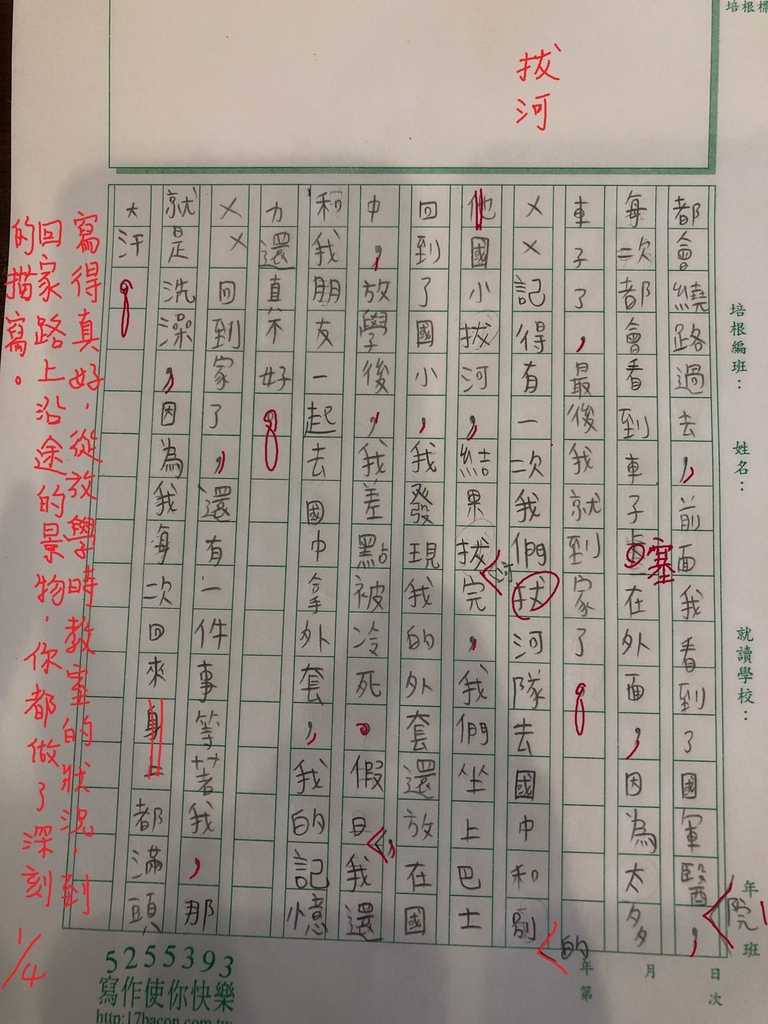 培根標
拔河
都會繞路過去,前面我看到了國軍醫院,
每次都會看到車子塞在外面,因為太多
車子了,最後我就到家了。
××記得有一次我們拔河隊去國中和別的
他國小拔河,結果拔河完,我們坐上巴士
回到了國小,我發現我的外套還放在國
中,放學後,我差點被冷死。假日,我還
和我朋友一起去國中拿外套,我的記憶
力還真不好。
××回到家了,還有一件事等著我,那
就是洗澡,因為我每次回來身上都滿頭
大汗。
寫得真好,從放學時教室的狀況,到
回家路上沿途的景物,你都做了深刻
的描寫。
1/4
培根編班:
姓名:
就讀學校:
年 班
年 月 日
第 次
5255393
寫作使你快樂
http:17bacon.com.tw